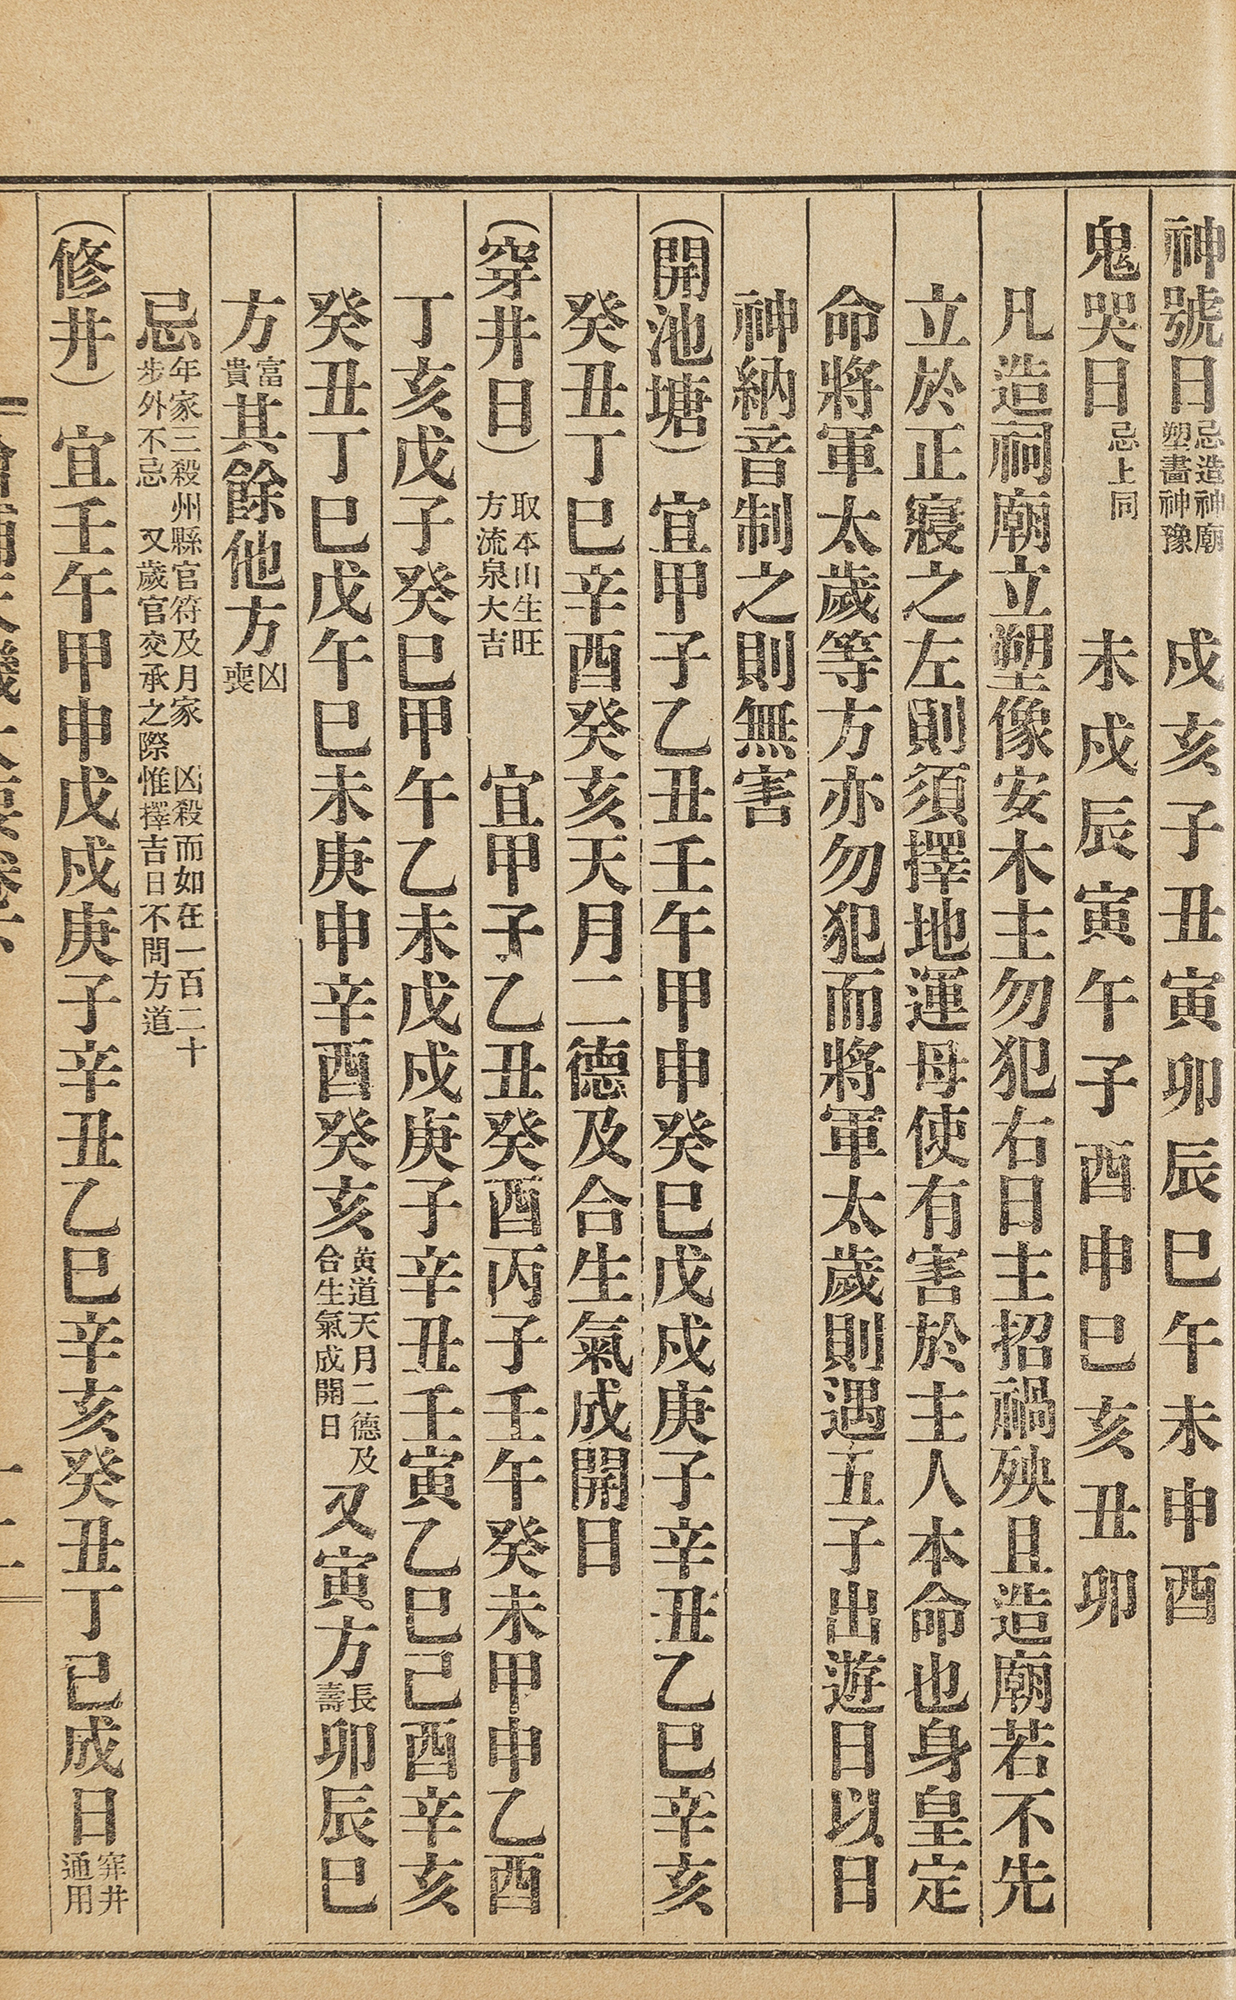 神號日忌造神廟塑畫神豫 戍亥子丑寅卯辰巳午未申酉
鬼哭日忌上同 未戍辰寅午子酉申巳亥丑卯
凡造祠廟立塑像安木主勿犯右日主招禍殃且造廟若不先
立於正寢之左則須擇地運母使有害於主人本命也身皇定
命將軍太歲等方亦勿犯而將軍太歲則遇五子出遊日以日
神納音制之則無害
(開池塘) 宜甲子乙丑壬午甲申癸巳戊戍庚子辛丑乙巳辛亥
癸丑丁巳辛酉癸亥天月二德及合生氣成開日
(穿井日) 取本山生旺方流泉大吉 宜甲子乙丑癸酉丙子壬午癸未甲申乙酉
丁亥戊子癸巳甲午乙未戊戍庚子辛丑壬寅乙巳己酉辛亥
癸丑丁巳戊午巳未庚申辛酉癸亥黃道天月二德及合生氣成開日又寅方長壽卯辰巳
方富貴其餘他方凶喪
忌年家三殺州縣官符及月家凶殺而如在一百二十步外不忌又歲官交承之際惟擇吉日不問方道
(修井) 宜壬午甲申戊戍庚子辛丑乙巳辛亥癸丑丁己成日穽井通用